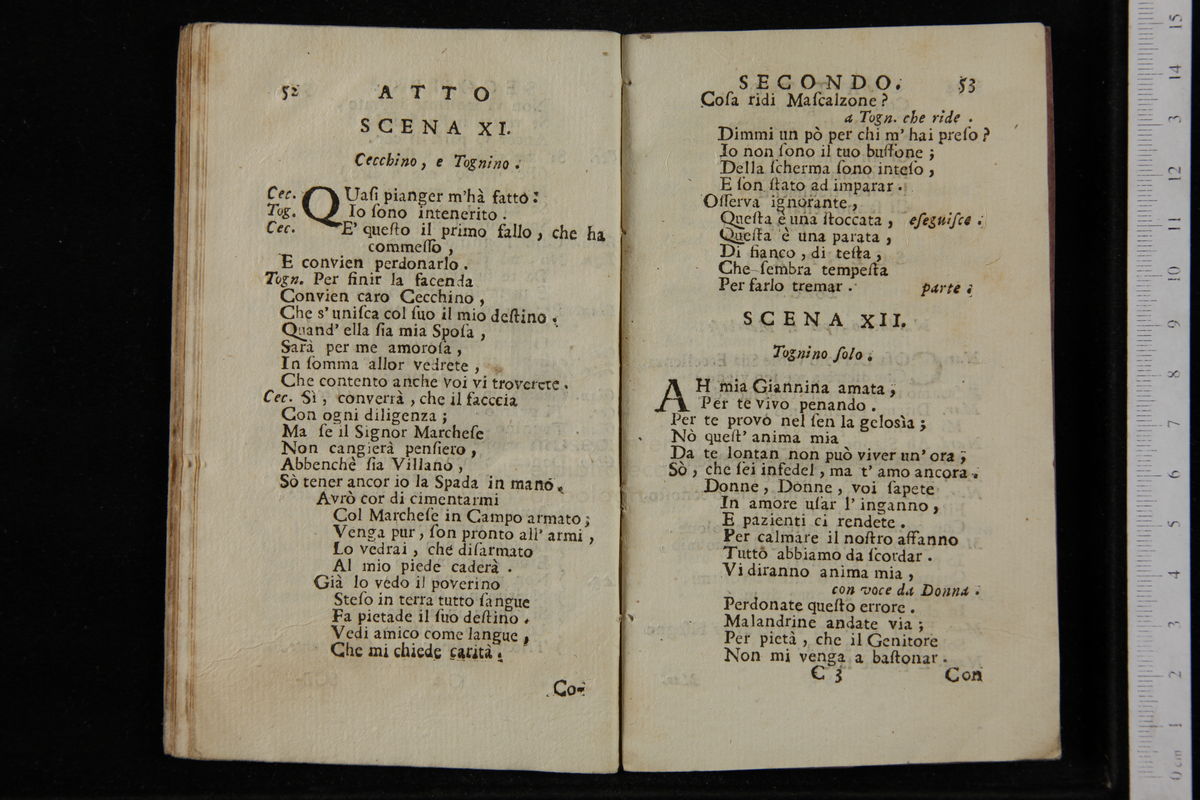 52 ATTO
SCENA XI.
Cecchino, e Tognino.
Cec. QUaſi pianger m'hà fatto:
Tog. Io ſono intenerito.
Cec. E' queſto il primo fallo, che ha
commeſſo,
E convien perdonarlo.
Togn. Per finir la facenda
Convien caro Cecchino,
Che s'uniſca col ſuo il mio deſtino.
Quand' ella ſia mia Spoſa,
Sarà per me amoroſa,
In ſomma allor vedrete,
Che contento anche voi vi troverete.
Cec. Sì, converrà, che il facccia
Con ogni diligenza;
Ma ſe il Signor Marcheſe
Non cangierà penſiero,
Abbenchè ſia Villano,
Sò tener ancor io la Spada in mano.
Avrò cor di cimentarmi
Col Marcheſe in Campo armato;
Venga pur, ſon pronto all' armi,
Lo vedrai, che diſarmato
Al mio piede caderà.
Già lo vedo il poverino
Steſo in terra tutto ſangue
Fa pietade il ſuo deſtino.
Vedi amico come langue,
Che mi chiede carità.
Co-
SECONDO. 53
Coſa ridi Maſcalzone?
a Togn. che ride.
Dimmi un pò per chi m' hai preſo?
Io non ſono il tuo buffone;
Della ſcherma ſono inteſo,
E ſon ſtato ad imparar.
Oſſerva ignorante,
Queſta è una ſtoccata, eſeguiſce.
Queſta è una parata,
Di fianco, di teſta,
Che ſembra tempeſta
Per farlo tremar. parte.
SCENA XII.
Tognino ſolo.
AH mia Giannina amata,
Per te vivo penando.
Per te provo nel ſen la gelosìa;
Nò queſt' anima mia
Da te lontan non può viver un' ora;
Sò, che ſei infedel, ma t' amo ancora.
Donne, Donne, voi ſapete
In amore uſar l' inganno,
E pazienti ci rendete.
Per calmare il noſtro affanno
Tutto abbiamo da ſcordar.
Vi diranno anima mia,
con voce da Donna.
Perdonate queſto errore.
Malandrine andate via;
Per pietà, che il Genitore
Non mi venga a baſtonar.
C 3 Con